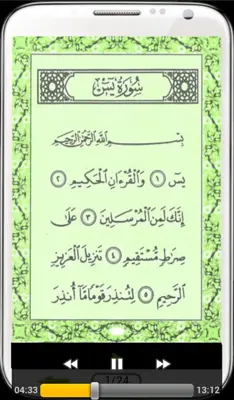 سُورَةُ يسٓ
بِسْمِ اللَّهِ الرَّحْمَٰنِ الرَّحِيمِ
يسٓ ١ وَالْقُرْءَانِ الْحَكِيمِ ٢
إِنَّكَ لَمِنَ الْمُرْسَلِينَ ٣ عَلَىٰ
صِرَاطٍ مُّسْتَقِيمٍ ٤ تَنزِيلَ الْعَزِيزِ
الرَّحِيمِ ٥ لِتُنذِرَ قَوْمًا مَّا أُنذِرَ
04:33 1/24 13:12